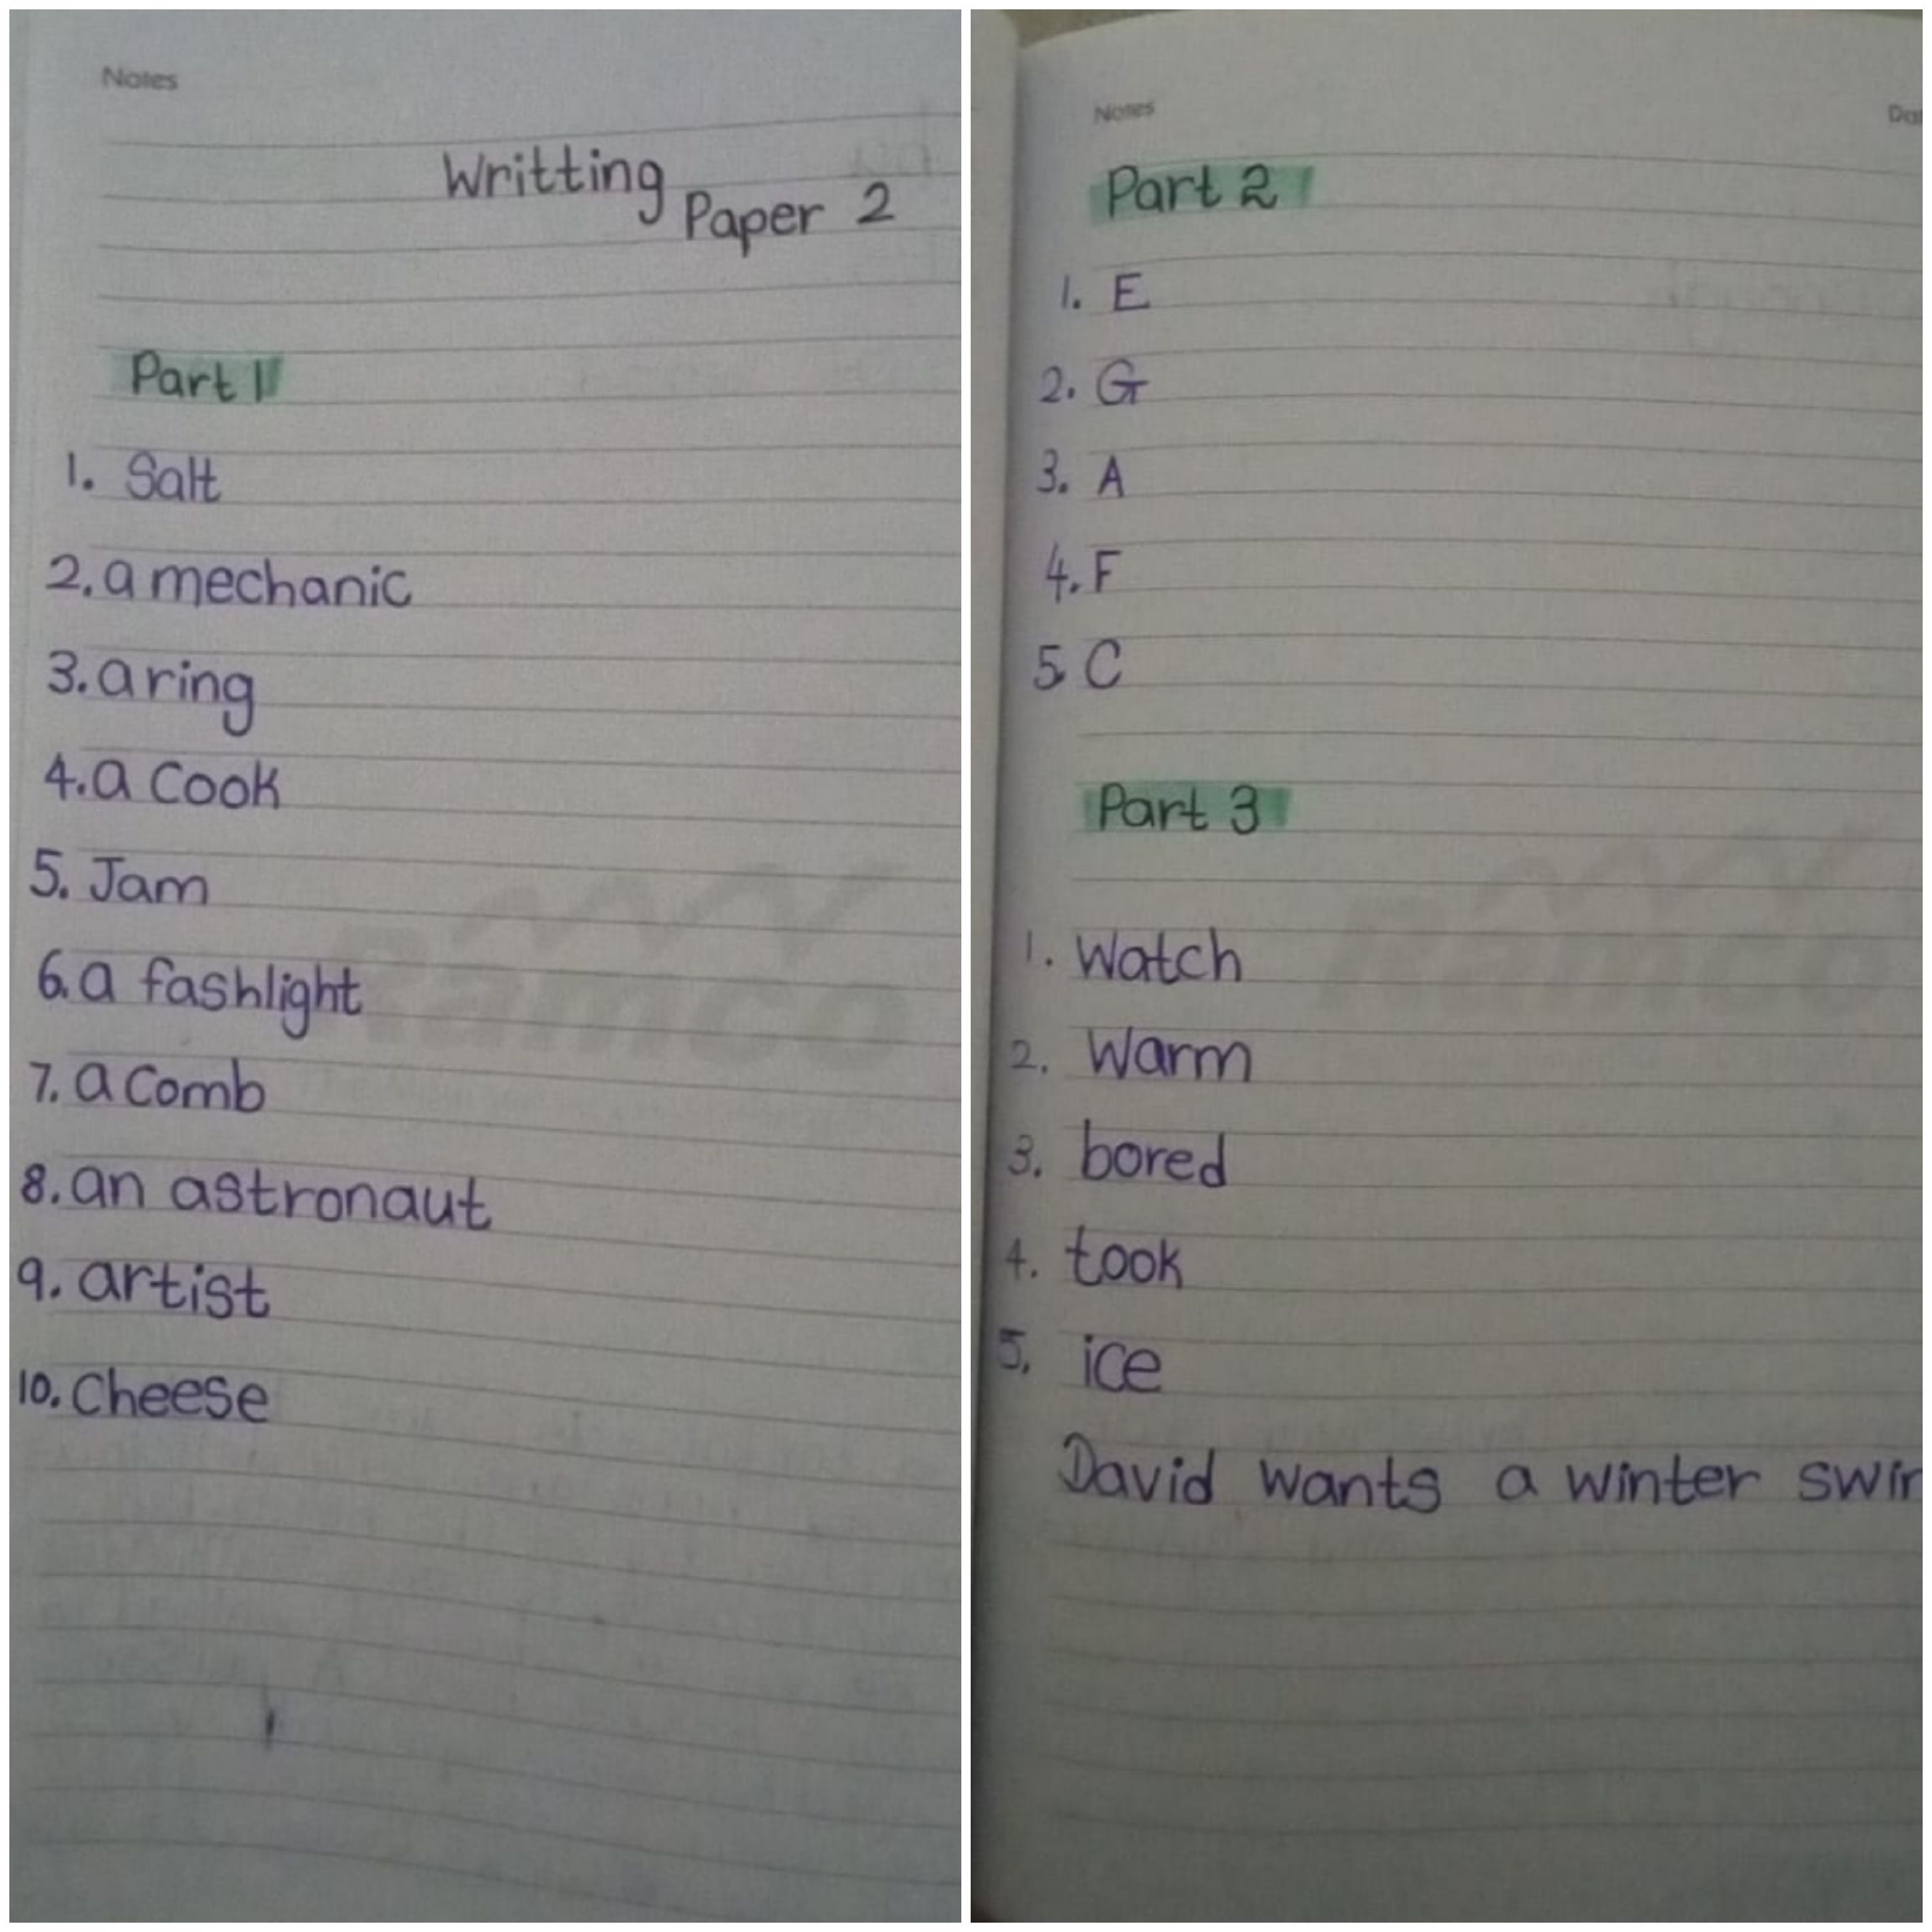 Notes
Writting
Paper 2
Part 1
1. Salt
2. a mechanic
3. a ring
4. a Cook
5. Jam
6. a fashlight
7. a Comb
8. an astronaut
9. artist
10. Cheese
Ramco
Notes
Part 2
1. E
2. G
3. A
4. F
5. C
Part 3
1. Watch
2. Warm
3. bored
4. took
5. ice
David wants a winter
Ramco